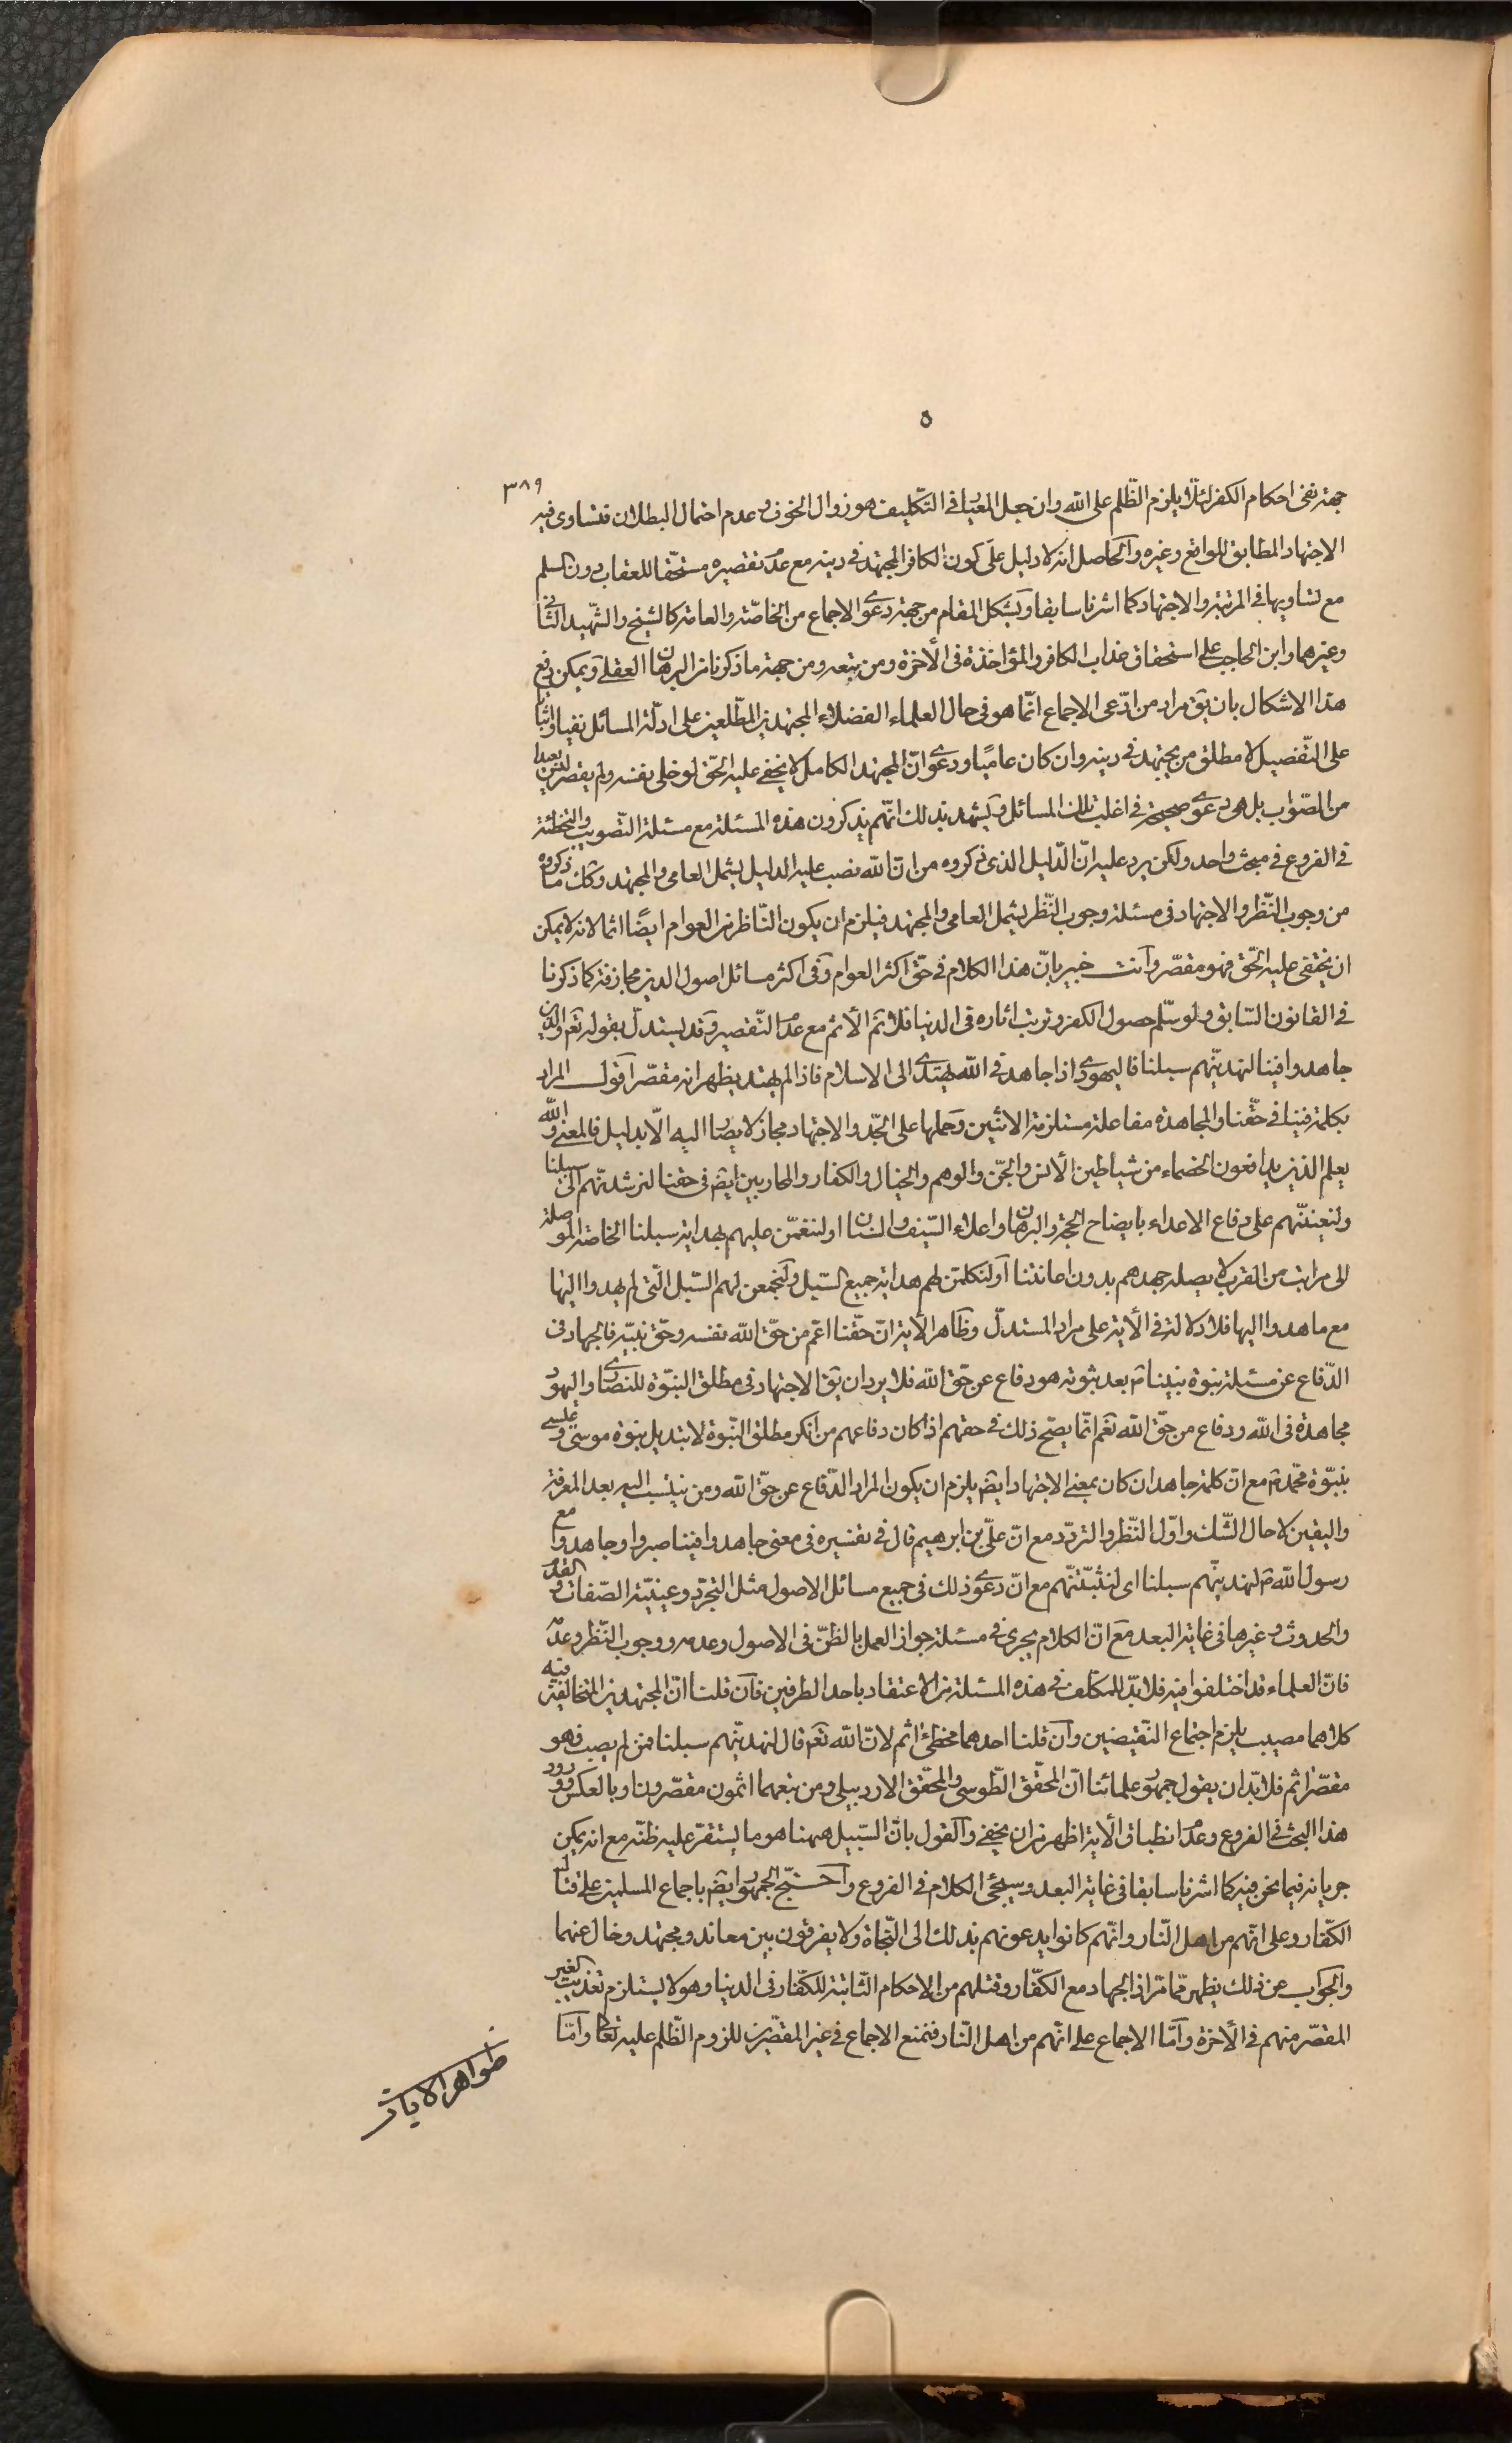 ٥
٣٨٩
جهة نفى احكام الكفر لئلّا يلزم الظّلم على اللّه وان جعل المعيار فى التّكليف هو زوال الخوف وعدم احتمال البطلان فتساوى فيه
الاجتهاد المطابق للواقع وغيره والحاصل انه لا دليل على كون الكافر المجتهد فى دينه مع عدم تقصيره مستحقّا للعقاب دون المسلم
مع تساويهما فى المرتبة والاجتهاد كما اشرنا سابقا ويشكل المقام من جهة دعوى الاجماع من الخاصّة والعامة كالشيخ والشّهيد الثّانى
وغيرهما وابن الحاجب على استحقاق عذاب الكافر والمؤاخذة فى الأخرة ومن يتبعه ومن جهة ما ذكرنا من البرهان العقلى ويمكن دفع
هذا الاشكال بان يقّ مراد من ادّعى الاجماع انّما هو فى حال العلماء الفضلاء المجتهدين المطّلعين على ادلّة المسائل نفيا واثباتا
على التّفصيل لا مطلق من يجتهد فى دينه وان كان عاميّا ودعوى انّ المجتهد الكامل لا يخفى عليه الحّق لو خلى نفسه ولم يقصر ليس بعيدا
من الصّواب بل هو دعوى صحيحة فى اغلب تلك المسائل ويشهد بذلك انّهم يذكرون هذه المسئلة مع مسئلة التّصويب والتّخطئة
فى الفروع فى مبحث واحد ولكن يرد عليه انّ الدّليل الذى ذكروه من انّ اللّه نصب عليه الدليل يشمل العامى والمجتهد وكك ما ذكروه
من وجوب النّظر والاجتهاد فى مسئلة وجوب النّظر يشمل العامى والمجتهد فيلزم ان يكون النّاظر من العوام ايضًا اثما لانه لا يمكن
ان يختفى عليه الحّق فهو مقصّر وانت خبير بانّ هذا الكلام فى حقّ اكثر العوام وفى اكثر مسائل اصول الدين مجازفة كما ذكرنا
فى القانون السّابق ولو سلّم حصول الكفر وترتب اثاره فى الدنيا فلا نم الأثم مع عدم التّقصير وقد يستدلّ بقوله تعم والّذين
جاهدوا فينا لنهدينّهم سبلنا فاليهودى اذا جاهد فى اللّه يهتدى الى الاسلام فاذا لم يهتد يظهر انه مقصّر اقول المراد
بكلمة فينا فى حقّنا والمجاهدة مفاعلة مستلزمة الاثنين وحملها على الجّد والاجتهاد مجاز لا يصار اليه الّا بدليل فالمعنى واللّه
يعلم الذين يدافعون الخصماء من شياطين الأنس والجّن والوهم والخيال والكفار والمحاربين ايضم فى حقنا لنرشدنّهم الى سبلنا
ولنعيننّهم على دفاع الاعداء بايضاح الحجة والبرهان واعلاء السّيف والسنان او لننعمّن عليهم بهداية سبلنا الخاصّة الموصلة
الى مراتب من القرب لا يصله جهدهم بدون اعانتنا او لنكلمّن لهم هداية جميع السّبل ولنجمعن لهم السّبل الّتى لم يهدوا اليها
مع ما هدوا اليها فلا دلالة فى الأية على مراد المستدلّ وظاهر الأية انّ حقّنا اعّم من حقّ اللّه نفسه وحقّ نبيّه فالجهاد فى
الدّفاع عن مسئلة نبوة نبينا ص بعد ثبوته هو دفاع عن حقّ اللّه فلا يرد ان يقّ الاجتهاد فى مطلق النبوّة للنصارى واليهود
مجاهدة فى اللّه ودفاع من حقّ اللّه نعم انّما يصحّ ذلك فى حقهم اذا كان دفاعهم من انكر مطلق النّبوة لا تبديل نبوة موسى وعيسى
بنبوّة محمّد ص مع انّ كلمة جاهد ان كان بمعنى الاجتهاد ايضم يلزم ان يكون المراد الدّفاع عن حقّ اللّه ومن ينتسب اليه بعد المعرفة
واليقين لا حال الشّك واوّل النّظر والتردّد مع انّ علىّ بن ابرهيم قال فى تفسيره فى معنى جاهدوا فينا صبروا وجاهدوا مع
رسول اللّه ص لنهدينّهم سبلنا اى لنثبّتنّهم مع انّ دعوى ذلك فى جميع مسائل الاصول مثل التجرّد وعينيّة الصّفات والقدم
والحدوث وغيرها فى غاية البعد مع انّ الكلام يجرى فى مسئلة جواز العمل بالظنّ فى الاصول وعدمه ووجوب النّظر وعدمه
فانّ العلماء قد اختلفوا فيه فلا بدّ للمكلف فى هذه المسئلة من الاعتقاد باحد الطرفين فان قلنا انّ المجتهدين المتخالفين فيه
كلاهما مصيب يلزم اجتماع النّقيضين وان قلنا احدهما مخطئ اثم لانّ اللّه تعم قال لنهدينّهم سبلنا فمن لم يصب فهو
مقصّر اثم فلا بدّ ان يقول جمهور علمائنا انّ المحقّق الطّوسى والمحقّق الاردبيلى ومن تبعهما اثمون مقصّرون او بالعكس وورود
هذا البحث فى الفروع وعدم انطباق الأية اظهر من ان يخفى والقول بانّ السّبيل ههنا هو ما يستقرّ عليه ظنّه مع انه يمكن
جريانه فيما نحن فيه كما اشرنا سابقا فى غاية البعد وسيجئ الكلام فى الفروع واحتجّ الجمهور ايضم باجماع المسلمين على قتال
الكفّار وعلى انّهم من اهل النّار وانّهم كانوا يدعونهم بذلك الى النّجاة ولا يفرقون بين معاند ومجتهد وخال عنهما
والجواب عن ذلك يظهر ممّا مرّ اذ الجهاد مع الكفّار وقتلهم من الاحكام الثّابتة للكفّار فى الدنيا وهو لا يستلزم تعذيب الغير
المقصّر منهم فى الأخرة وامّا الاجماع على انّهم من اهل النّار فنمنع الاجماع فى غير المقصّرين للزوم الظّلم عليه تعالى وامّا
ظواهر الايات